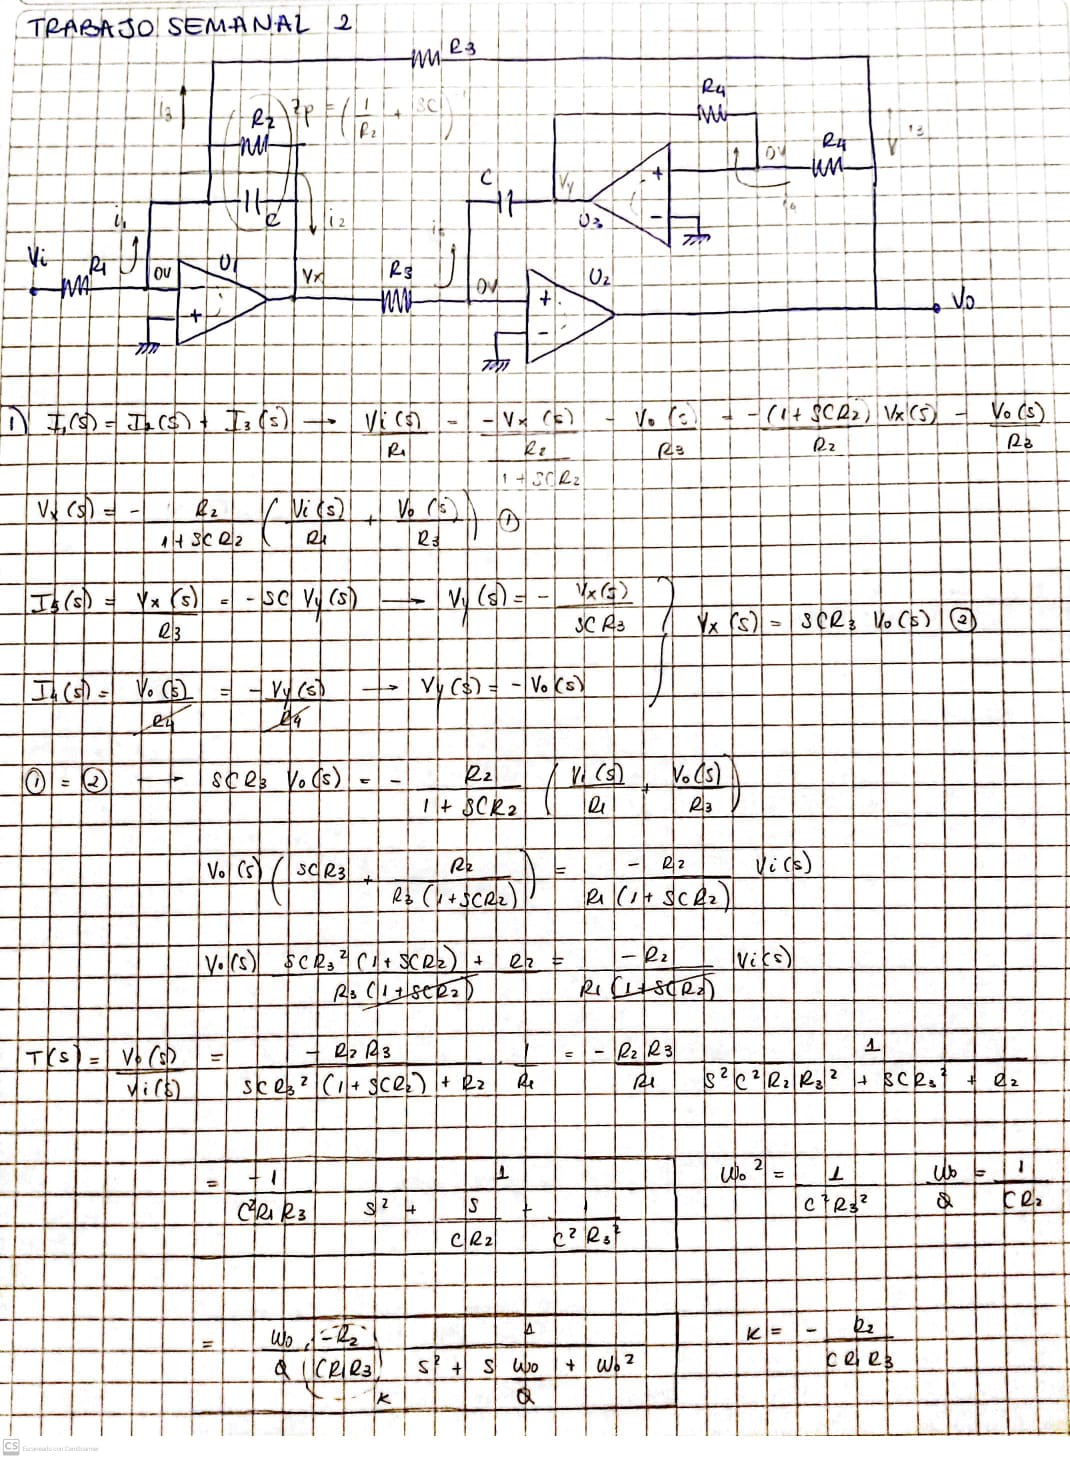 TRABAJO SEMANAL 2
R3
R4
i3
R2
Zp = (1/R2 + SC)
R4
i3
0V
C
Vy
+
-
U3
i4
C
i1
i2
Vi
R1
0V
U1
-
+
Vx
R3
0V
+
-
U2
Vo
1) I1(S) = I2(S) + I3(S) → Vi(S)/R1 = - Vx(S)/(R2/(1+SCR2)) - Vo(S)/R3 = - (1+SCR2) Vx(S)/R2 - Vo(S)/R3
Vx(S) = - R2/(1+SCR2) (Vi(S)/R1 + Vo(S)/R3) ①
(S) = Vx(S)/R3 = - SC Vy(S) → Vy(S) = - Vx(S)/SCR3
Vx(S) = SCR3 Vo(S) ②
I4(S) = Vo(S)/R4 = - Vy(S)/R4 → Vy(S) = - Vo(S)
① = ② → SCR3 Vo(S) = - R2/(1+SCR2) (Vi(S)/R1 + Vo(S)/R3)
Vo(S) (SCR3 + R2/(R3(1+SCR2))) = - R2/(R1(1+SCR2)) Vi(S)
Vo(S) (SCR3²(1+SCR2) + R2)/(R3(1+SCR2)) = - R2/(R1(1+SCR2)) Vi(S)
T(S) = Vo(S)/Vi(S) = - R2R3/(SCR3²(1+SCR2) + R2) 1/R1 = - R2R3/R1 1/(S²C²R2R3² + SCR3² + R2)
= -1/(C²R1R3) 1/(S² + S/(CR2) + 1/(C²R3²)) Wo² = 1/(C²R3²) Wo/Q = 1/(CR2)
= Wo/Q (-R2/(CR1R3)) 1/(S² + S Wo/Q + Wo²) K = - R2/(CR1R3)
K
CS Escaneado con CamScanner